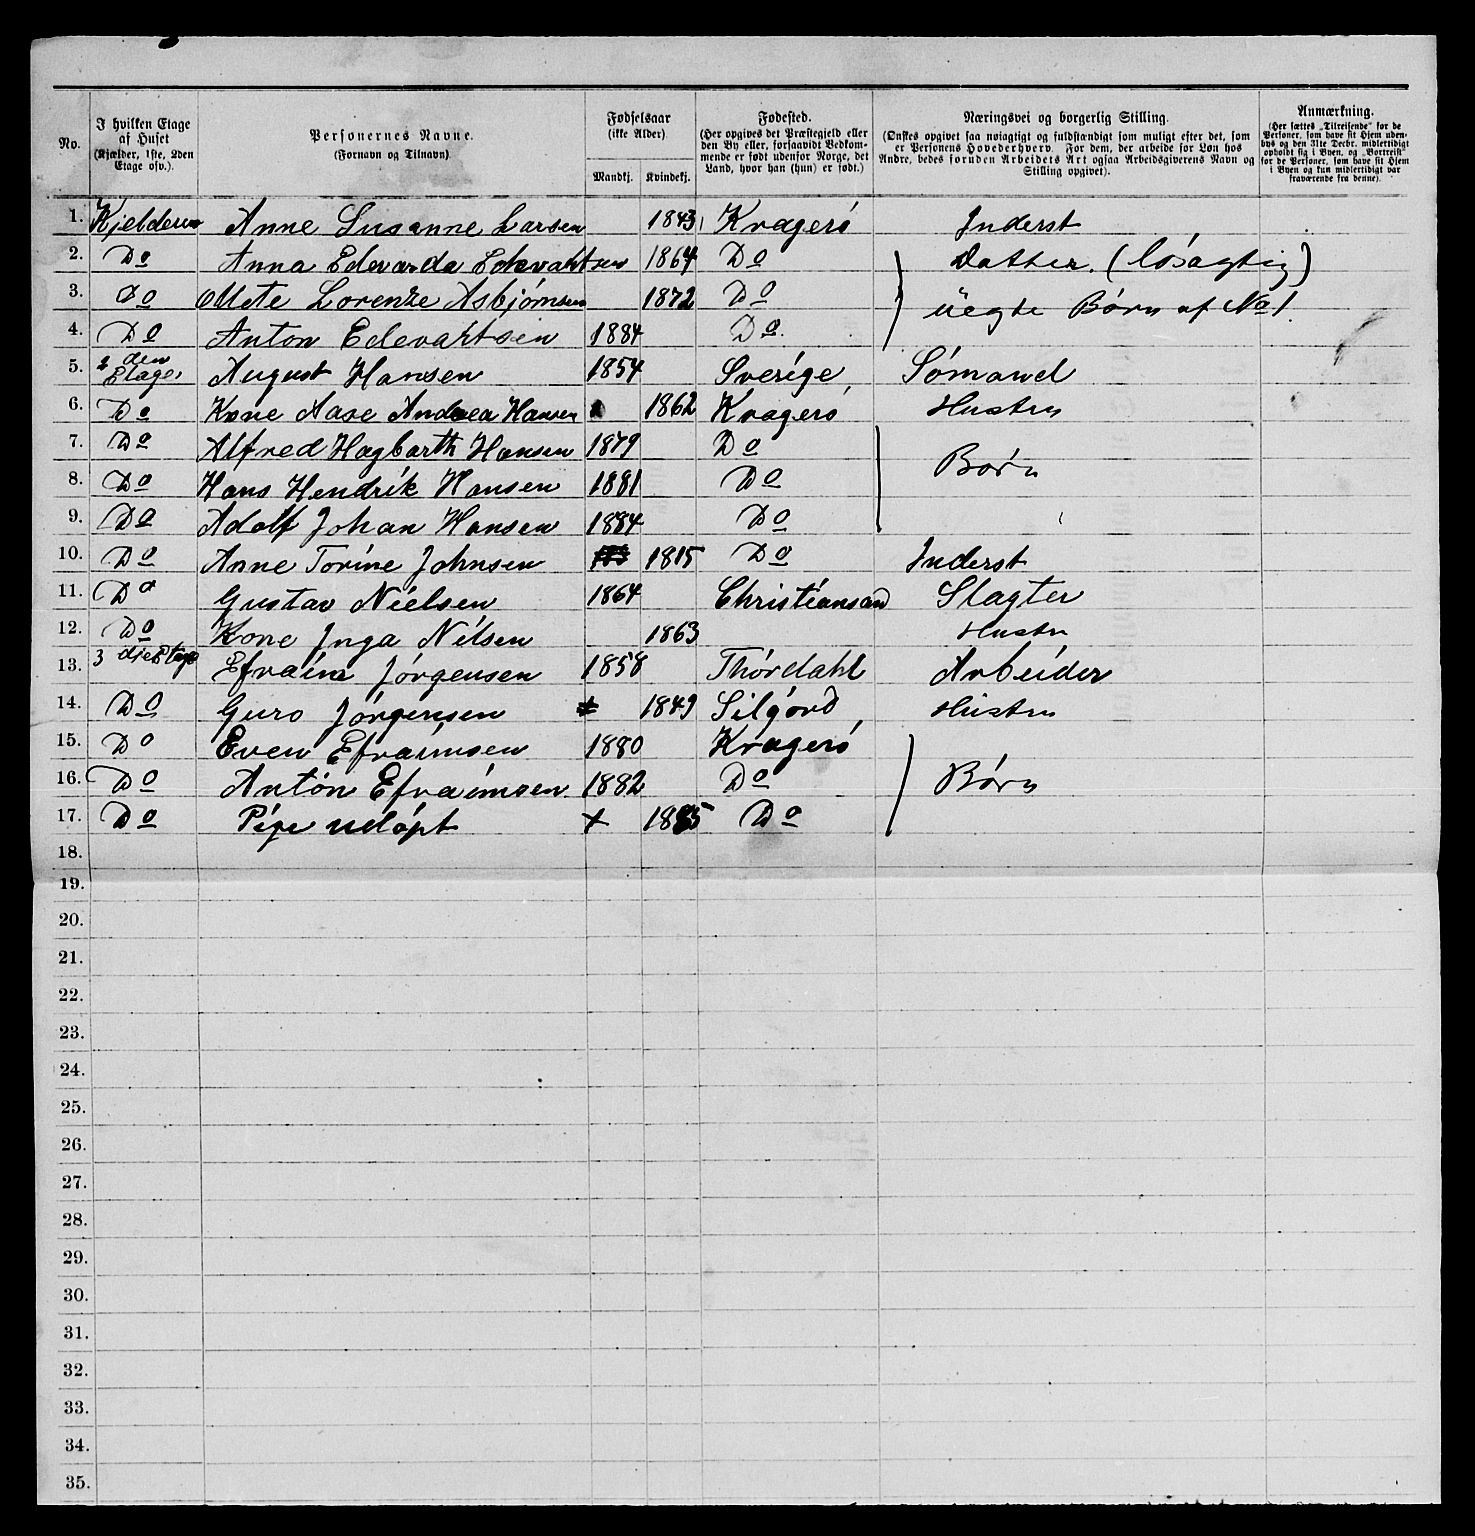 No. I hvilken Etage af Huset (Kjælder, 1ste, 2den Etage osv.). Personernes Navne. (Fornavn og Tilnavn) Fødselsaar (ikke Alder). Mandkj. Kvindekj. Fødested. (Her opgives det Præstegjeld eller den By eller, forsaavidt Vedkommende er født udenfor Norge, det Land, hvor han (hun) er født.) Næringsvei og borgerlig Stilling. (Ønskes opgivet saa nøiagtigt og fuldstændigt som muligt efter det, som er Personens Hovederhverv. For dem, der arbeide for Løn hos Andre, bedes foruden Arbeidets Art ogsaa Arbeidsgiverens Navn og Stilling opgivet). Anmærkning. (Her sættes „Tilreisende" for de Personer, som have sit Hjem udenbys og den 31te Decbr. midlertidigt opholdt sig i Byen, og „Bortreist" for de Personer, som have sit Hjem i Byen og kun midlertidigt var fraværende fra denne).
1. Kjelderen Anne Susanne Larsen 1843 Kragerö Inderst
2. Do Anna Edevarda Edevahrtsen 1864 Do Datter. (lösagtig)
3. Do Mete Lorenze Asbjørnsen 1872 Do üegte Børn af No 1.
4. Do Anton Edevahrtsen 1884 Do.
5. 2den Etage, August Hansen 1854 Sverige Sømand
6. Do Kone Aase Andrea Hansen 1862 Kragerö Hustru
7. Do Alfred Hagbarth Hansen 1879 Do Børn
8. Do Hans Hendrik Hansen 1881 Do
9. Do Adolf Johan Hansen 1884 Do
10. Do Anne Torine Johnsen 1815 Do Inderst
11. Do Gustav Nielsen 1864 Christiansand Slagter
12. Do Kone Inga Nilsen 1863 Hustru
13. 3 dje Etage Efraim Jörgensen 1858 Thördahl Arbeider
14. Do Guro Jörgensen 1849 Silgörd Hustru
15. Do Even Efraimsen 1880 Kragerö
16. Do Antön Efraimsen 1882 Do Börn
17. Do Pige udöpt + 1885 Do
18.
19.
20.
21.
22.
23.
24.
25.
26.
27.
28.
29.
30.
31.
32.
33.
34.
35.